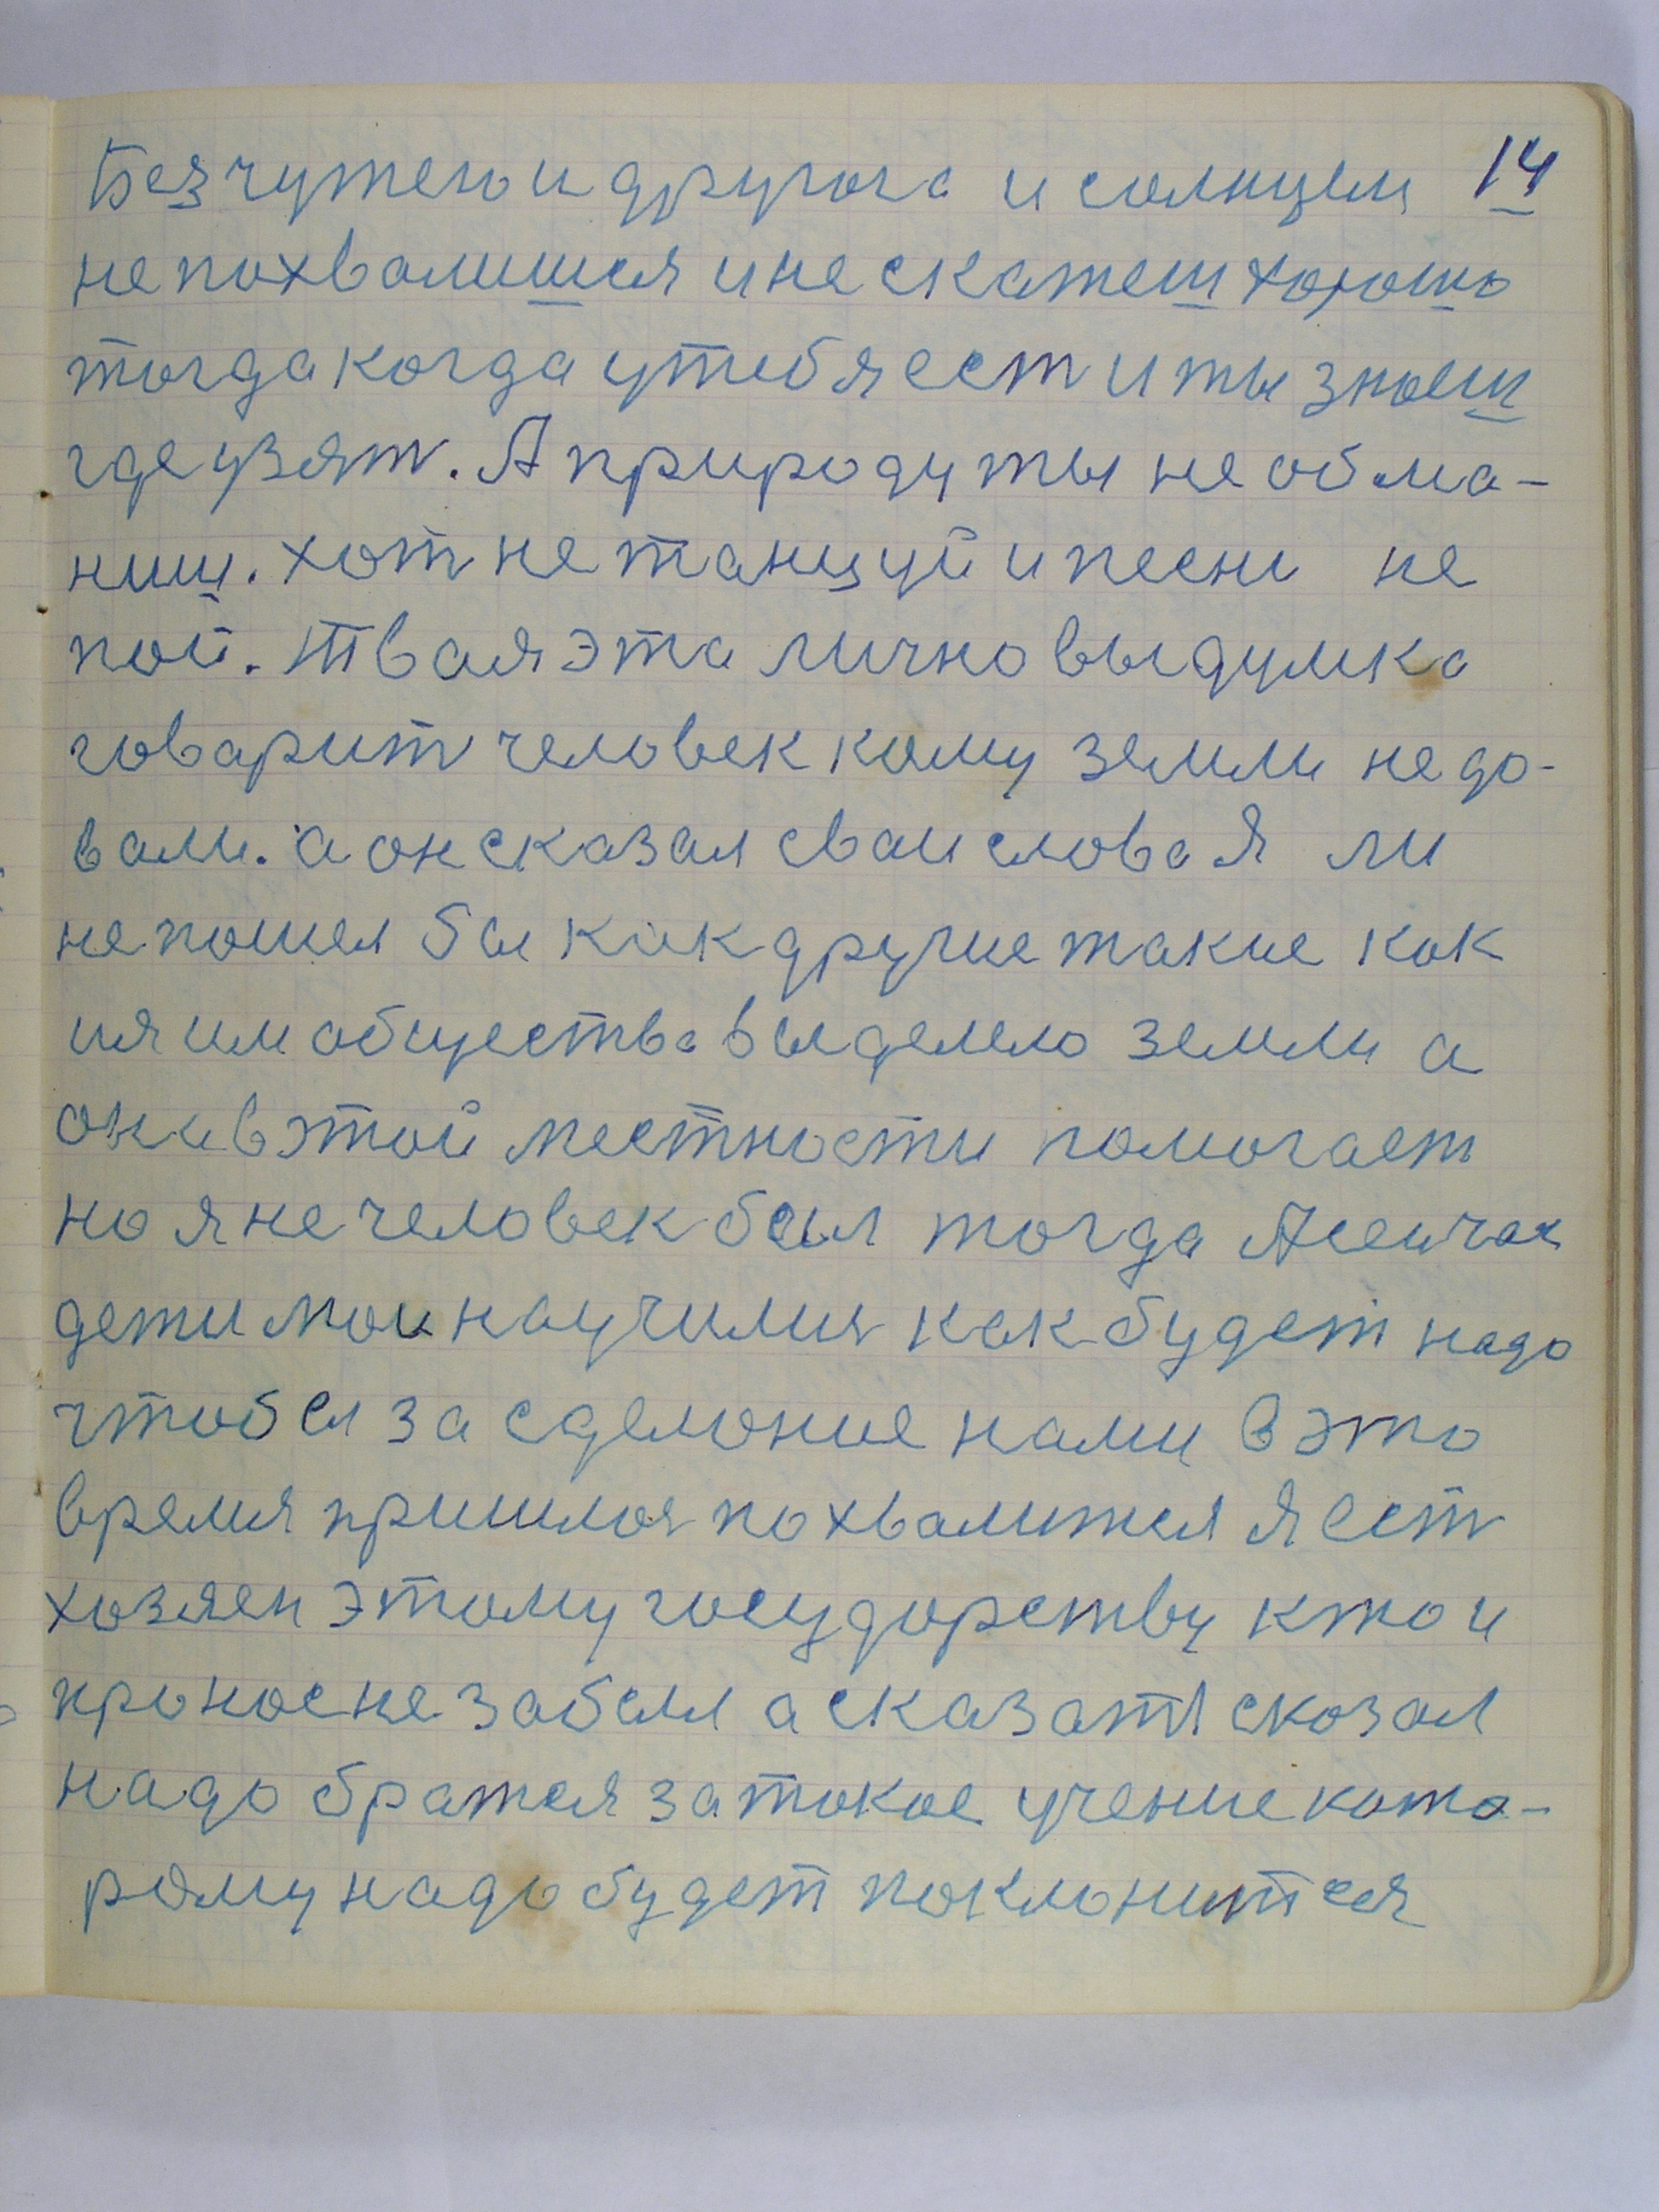 Без чужего и другога и солнцем 14
не похвалишся и не скажеш хорошо
тогда когда у тибя ест и ты знаеш
где узят. А природу ты не обма-
ниш. хот не танцуй и песни не
пой. Твая эта лично выдумка
говарит человек кому земли не до-
вали. а он сказал сваи слова Я ли
не пошел бы как другие такие как
и я им общества выделело земли а
он и в этой местности помогает
но я не человек был тогда А сейчас
дети мои научилис как будет надо
чтобы за сделоние нами в это
время пришлос похвалится Я ест
хозяен этому государству кто и
про нос не забыл а сказат сказал
надо братся за токое учение кото-
рому надо будет поклонится